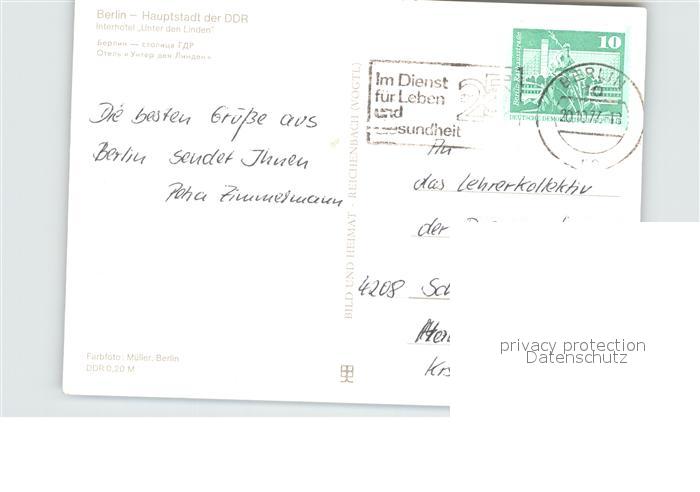 Berlin – Hauptstadt der DDR
Interhotel „Unter den Linden"
Берлин — столица ГДР
Отель «Унтер ден Линден»
Die besten Grüße aus
Berlin sendet Ihnen
Petra Zimmermann
Farbfoto: Müller, Berlin
DDR 0,20 M
BILD UND HEIMAT · REICHENBACH (VOGTL)
Im Dienst
für Leben
und
Gesundheit
10
BERLIN
An
das Lehrerkollektiv
der
4208
privacy protection
Datenschutz